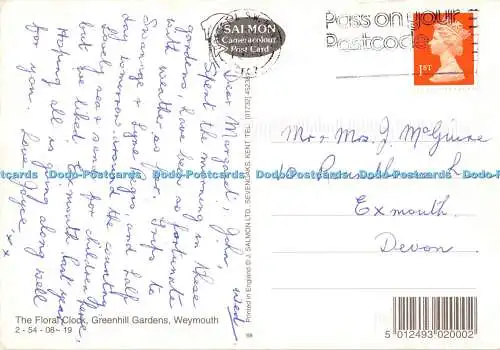 SALMON
Cameracolour
Post Card
Pass on your
Postcode
1ST
Wed.
Dear Margaret, John,
Spent the morning in these
gardens, have been so fortunate
with weather so far. Trips to
Swanage & Lyme Regis and half
day tomorrow around the country
Lovely sea & sand for children here,
but we liked Exmouth last year.
Hoping all is going along well
for you. Love Joyce xx
Mr & Mrs. J. McGuire
Exmouth
Devon.
Dodo-Postcards Dodo-Postcards Dodo-Postcards Dodo-Postcards Dodo-Postcards
Printed in England © J. SALMON LTD. SEVENOAKS KENT TEL:
The Floral Clock, Greenhill Gardens, Weymouth
2 - 54 - 08 - 19
5 012493 020002